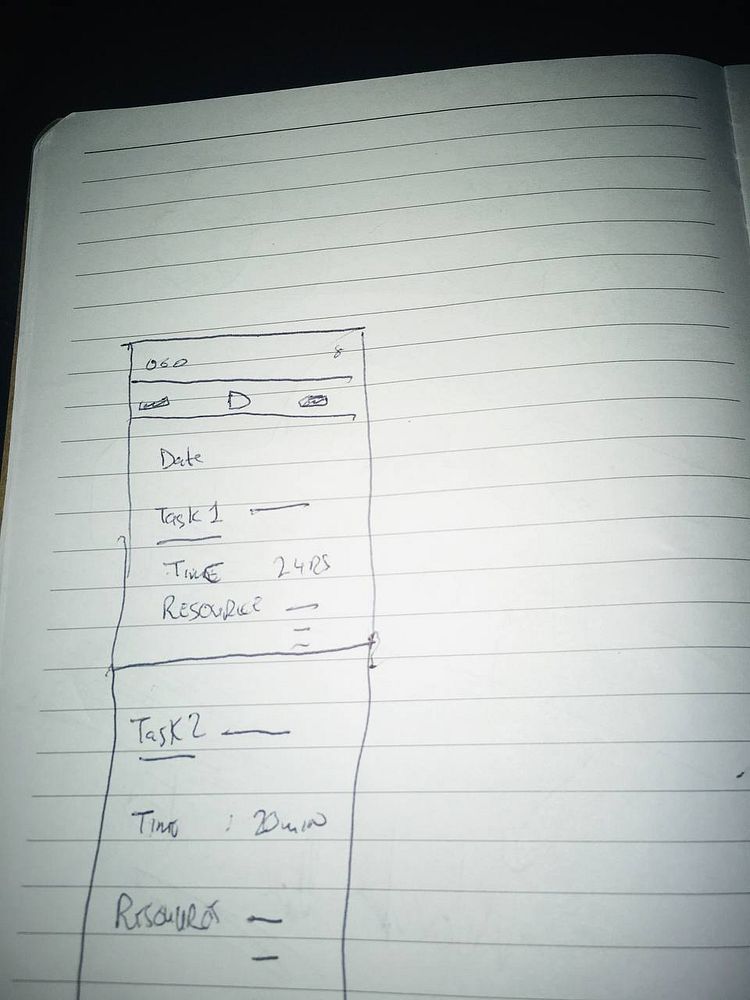 Date
Task 1
TIME 2HRS
RESOURCE
Task 2
TIME : 20 min
RESOURCES